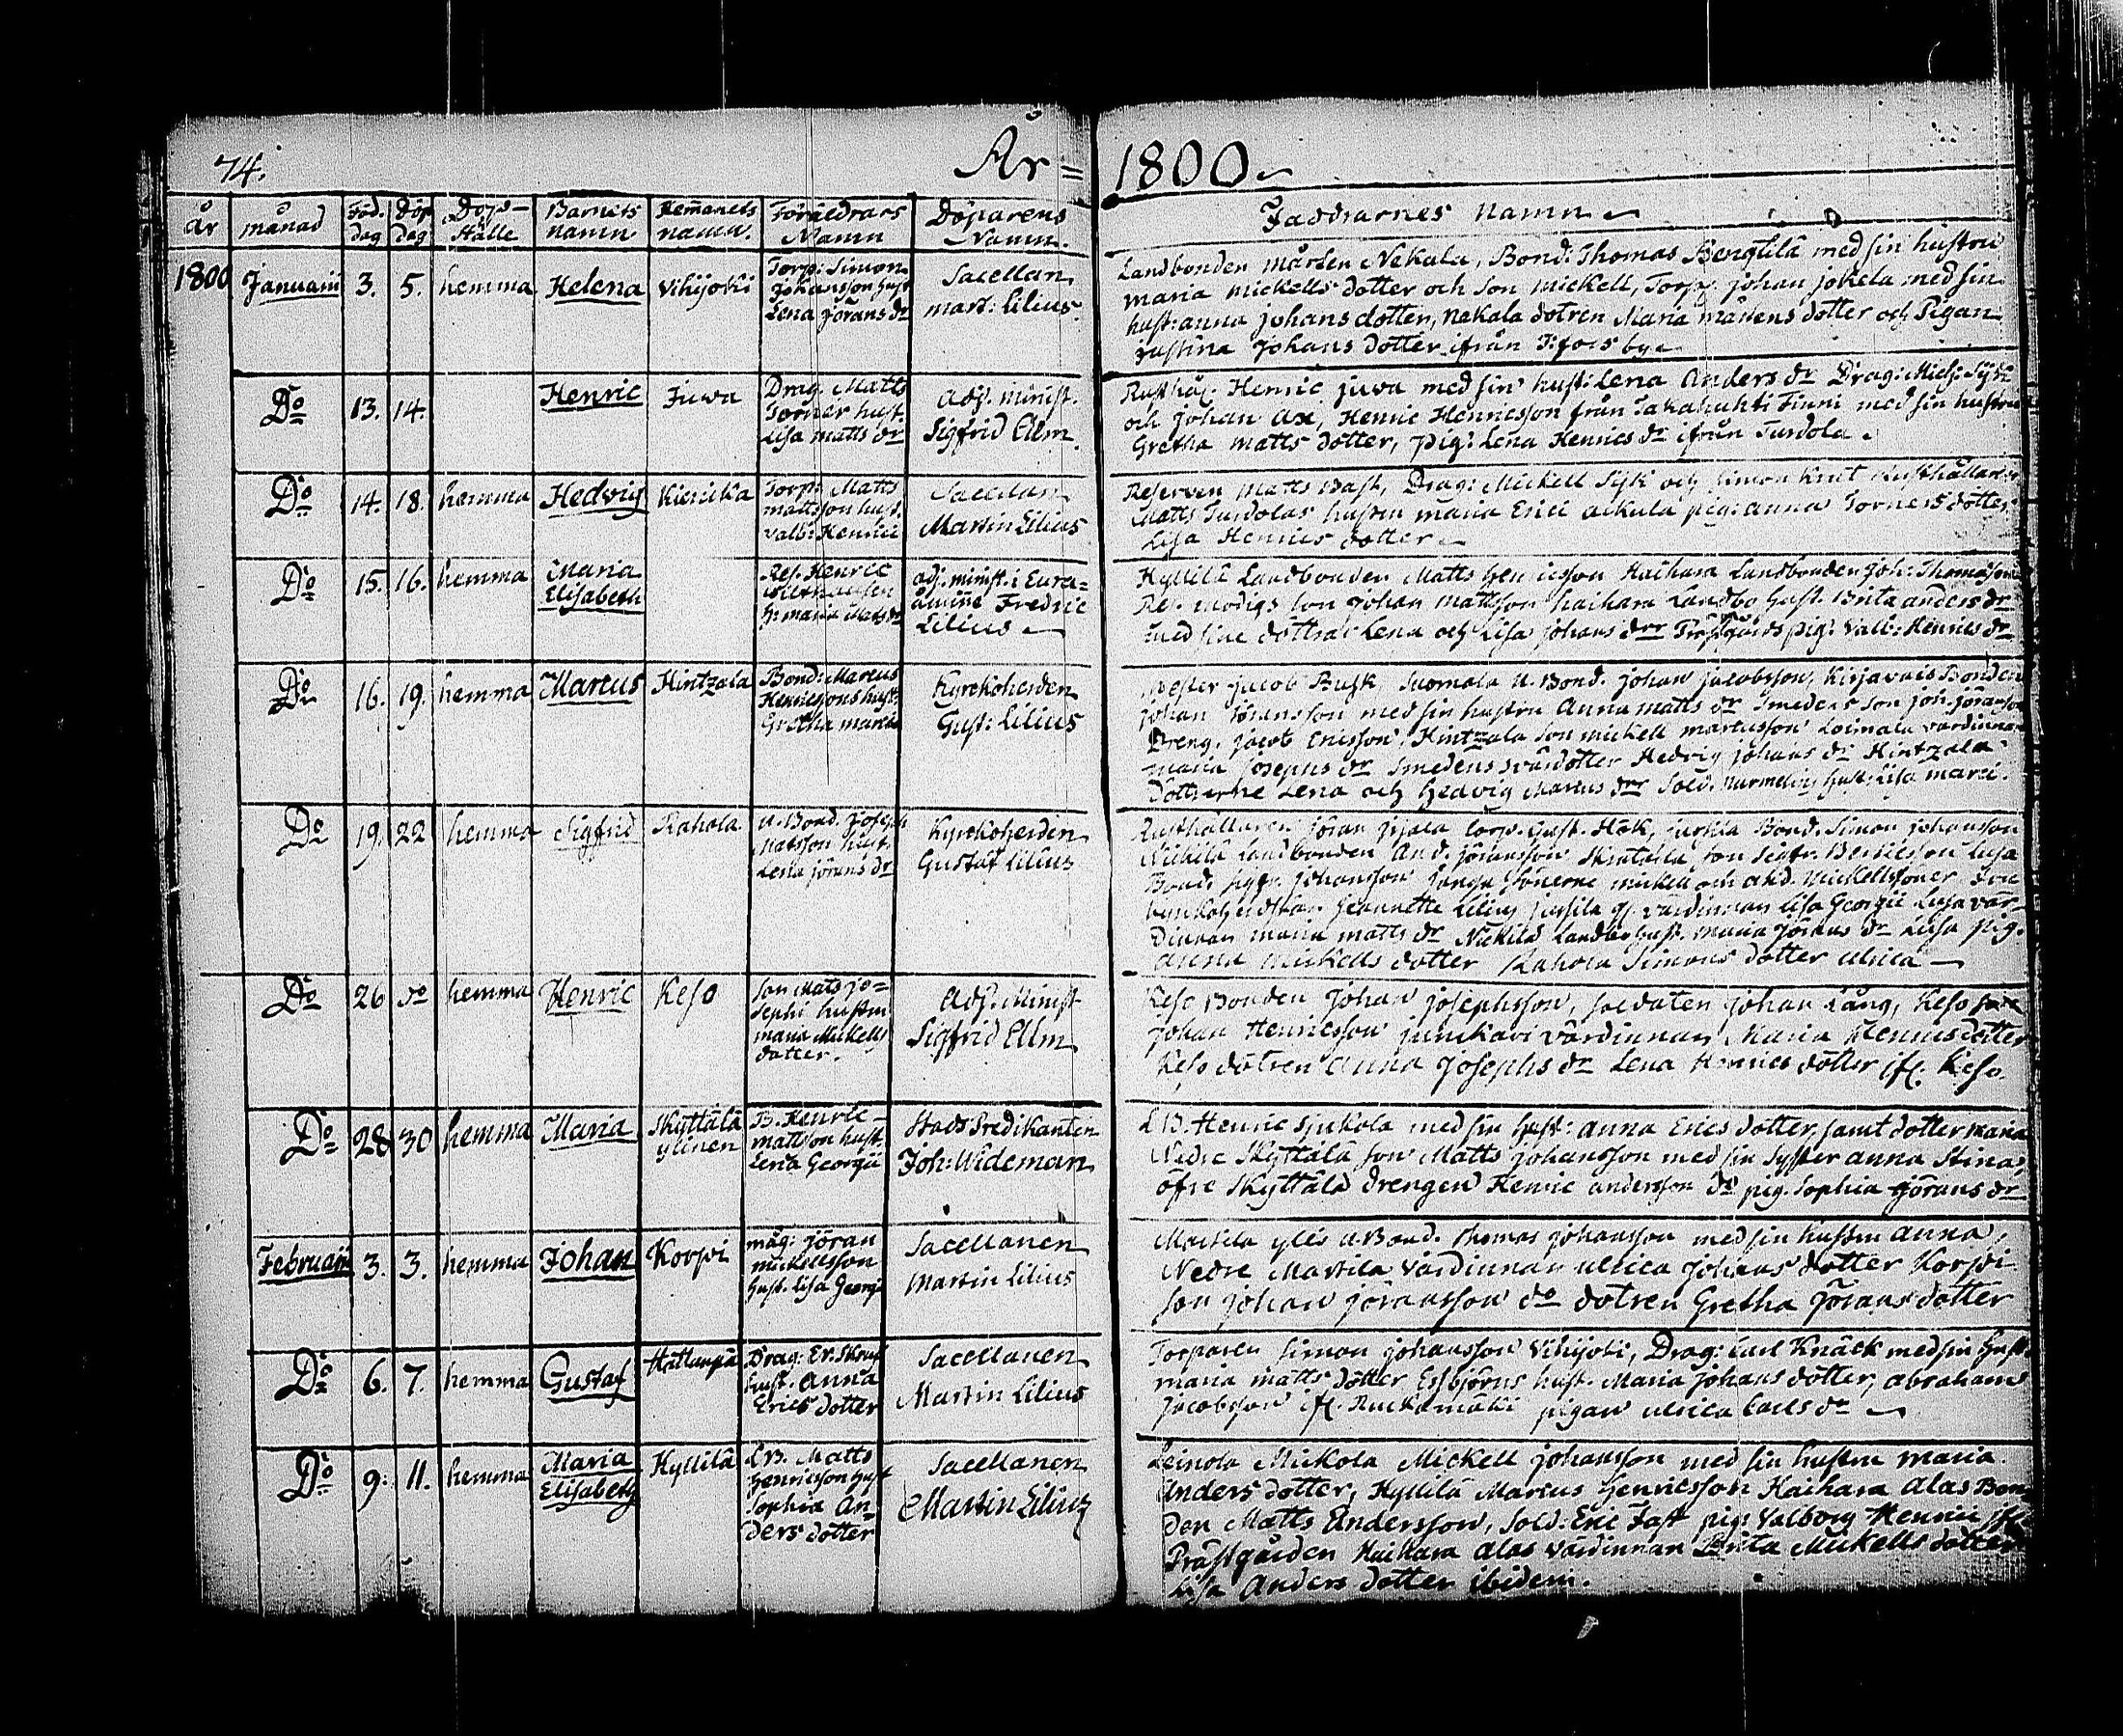 74.
År = 1800
år månad Föd. dag Döp dag Döp-Ställe Barnets namn Hemanets namn. Föräldrars Namn Döparens Namn. Faddrarnes namn
1800 Januarii 3. 5. hemma Helena Vihijoki
Torp: Simon
Johansson hust
Lena Jörans dr
Sacellan
mart: Lilius.
Landbonden mårten Nekala, Bond: Thomas Bengtilä med sin hustru
maria mickells dotter och son mickell, Torp. johan jokela med sin
hust: anna johans dotter, nakala dotren Maria mårtens dotter och Pigan
justina Johans dotter ifrån
Do 13. 14. Henric Juva
Drag. Matts
Torner hust.
Lisa matts dr
Adj. minist.
Sigfrid Ellm.
Henric juva med sin hust: Lena Anders dr Drag:
och johan Ax, Henric Henricsson från Takahuhti Finni med sin hustru
Gretha matts dotter, pig: Lena Henrics dr ifrån Turdola.
Do 14. 18. hemma Hedvig
Torp: Matts
mattsson hust.
Valb: Henrici
Sacellan
Martin Lilius
Reserven Matts Bask, Drag: Mickell Sysk och Simon Knut
Matts Turdolas hustru maria Erici pig: anna Torners dotter
Lisa Henrics dotter
Do 15. 16. hemma Maria Elisabeth
Res. Henric
h: maria Mats dr
adj. minist. i Eura=
åminne Fredric
Lilius
Hyllilä Landbonden Matts Henricsson Haihara Landbonden Joh: Thomasson
Re. modigs son johan mattsson haihara Landbo hust. Brita anders dr
med sine döttrar Lena och Lisa johans drr Prästgårds pig: Valb: Henrics dr
Do 16. 19. hemma Marcus Hintzala
Bond: Marcus
Henricssons hust:
Gretha marci
Kyrckoherden
Gust: Lilius
jacob Busk, Suomala U. Bond. johan jacobsson, Kirjavais Bonden
johan Jöransson med sin hustru Anna matts dr Smedens son joh: jöransson
Dreng. jacob Ericsson, Hintzala son mickell marcusson Loimala värdinnan
maria Josephs dr Smedens svärdotter Hedvig johans dr Hintzala
döttrarne Lena och Hedvig Marcus drr Sold. Nurmelin hust: Lisa marci.
Do 19. 22 hemma Sigfrid Rahola
U. Bond. Joseph
Matsson hust.
Lena jörans dr
Kyrckoherden
Gustaf Lilius
Rusthållaren Jöran Corp. Gust. Hök, Bond. Simon johansson
Nickilä Landbonden And. jöransson son Sigfr. Luja
Bond. Sigfr. johansson sönerne mickell och And. Mickellssoner
Jeannette Lilius värdinnan Lisa Georgii Luja vär-
dinnan maria matts dr Nickilä Landbo hust. maria Jörans dr Luja pig.
anna mickells dotter Rahola Simons dotter ulrica
Do 26 do hemma Henric Keso
Son Mats jo=
sephi hustru
maria Mickells
dotter.
Adj. Minist
Sigfrid Ellm
Keso Bonden Johan josephsson, Soldaten johan Lång, Keso
johan Henricsson värdinnan Maria Henrics dotter
Keso dotren Anna josephs dr Lena Henrics dotter ifr. Keso.
Do 28 30 hemma Maria Skyttälä ylinen
B. Henric
mattsson hust.
Lena Georgii
Stads Predikanten
Joh: Wideman
LB. Henric med sin hust: anna Erics dotter samt dotter maria
Nedre Skyttälä son Matts johansson med sin syster anna Stina,
öfre Skyttälä drengen Henric andersson do pig. Sophia jörans dr
Februarii 3. 3. hemma Johan Korpi
måg: jöran
mickellsson
hust. Lisa Georgi
Sacellanen
Martin Lilius
Martila ylis U. Bond. Thomas johansson med sin hustru anna,
Nedre Martila värdinnan ulrica johans dotter Korpi
son johan jöransson do dotren Gretha Jörans dotter
Do 6. 7. hemma Gustaf
Drag: Er.
hust. Anna
Erics dotter
Sacellanen
Martin Lilius
Torparen Simon johansson Vihijoki, Drag: Carl Knäck med sin hust.
maria matts dotter Esbjörns hust. Maria johans dotter, abraham
Jacobsson ifr. pigan ulrica Carls dr
Do 9. 11. hemma Maria Elisabeth Hyllilä
LB. Matts
Henricsson hust
Sophia An=
ders dotter
Sacellanen
Martin Lilius
Leinola Mickola Mickell johansson med sin hustru maria
Anders dotter, Hyllilä Marcus Henricsson Haihara Alas Bon=
den Matts Andersson, Sold: Eric Fast pig: Valborg Henrici ifr
Prästgården Haihara alas värdinnan Brita Mickells dotter
Lisa Anders dotter ibidem.